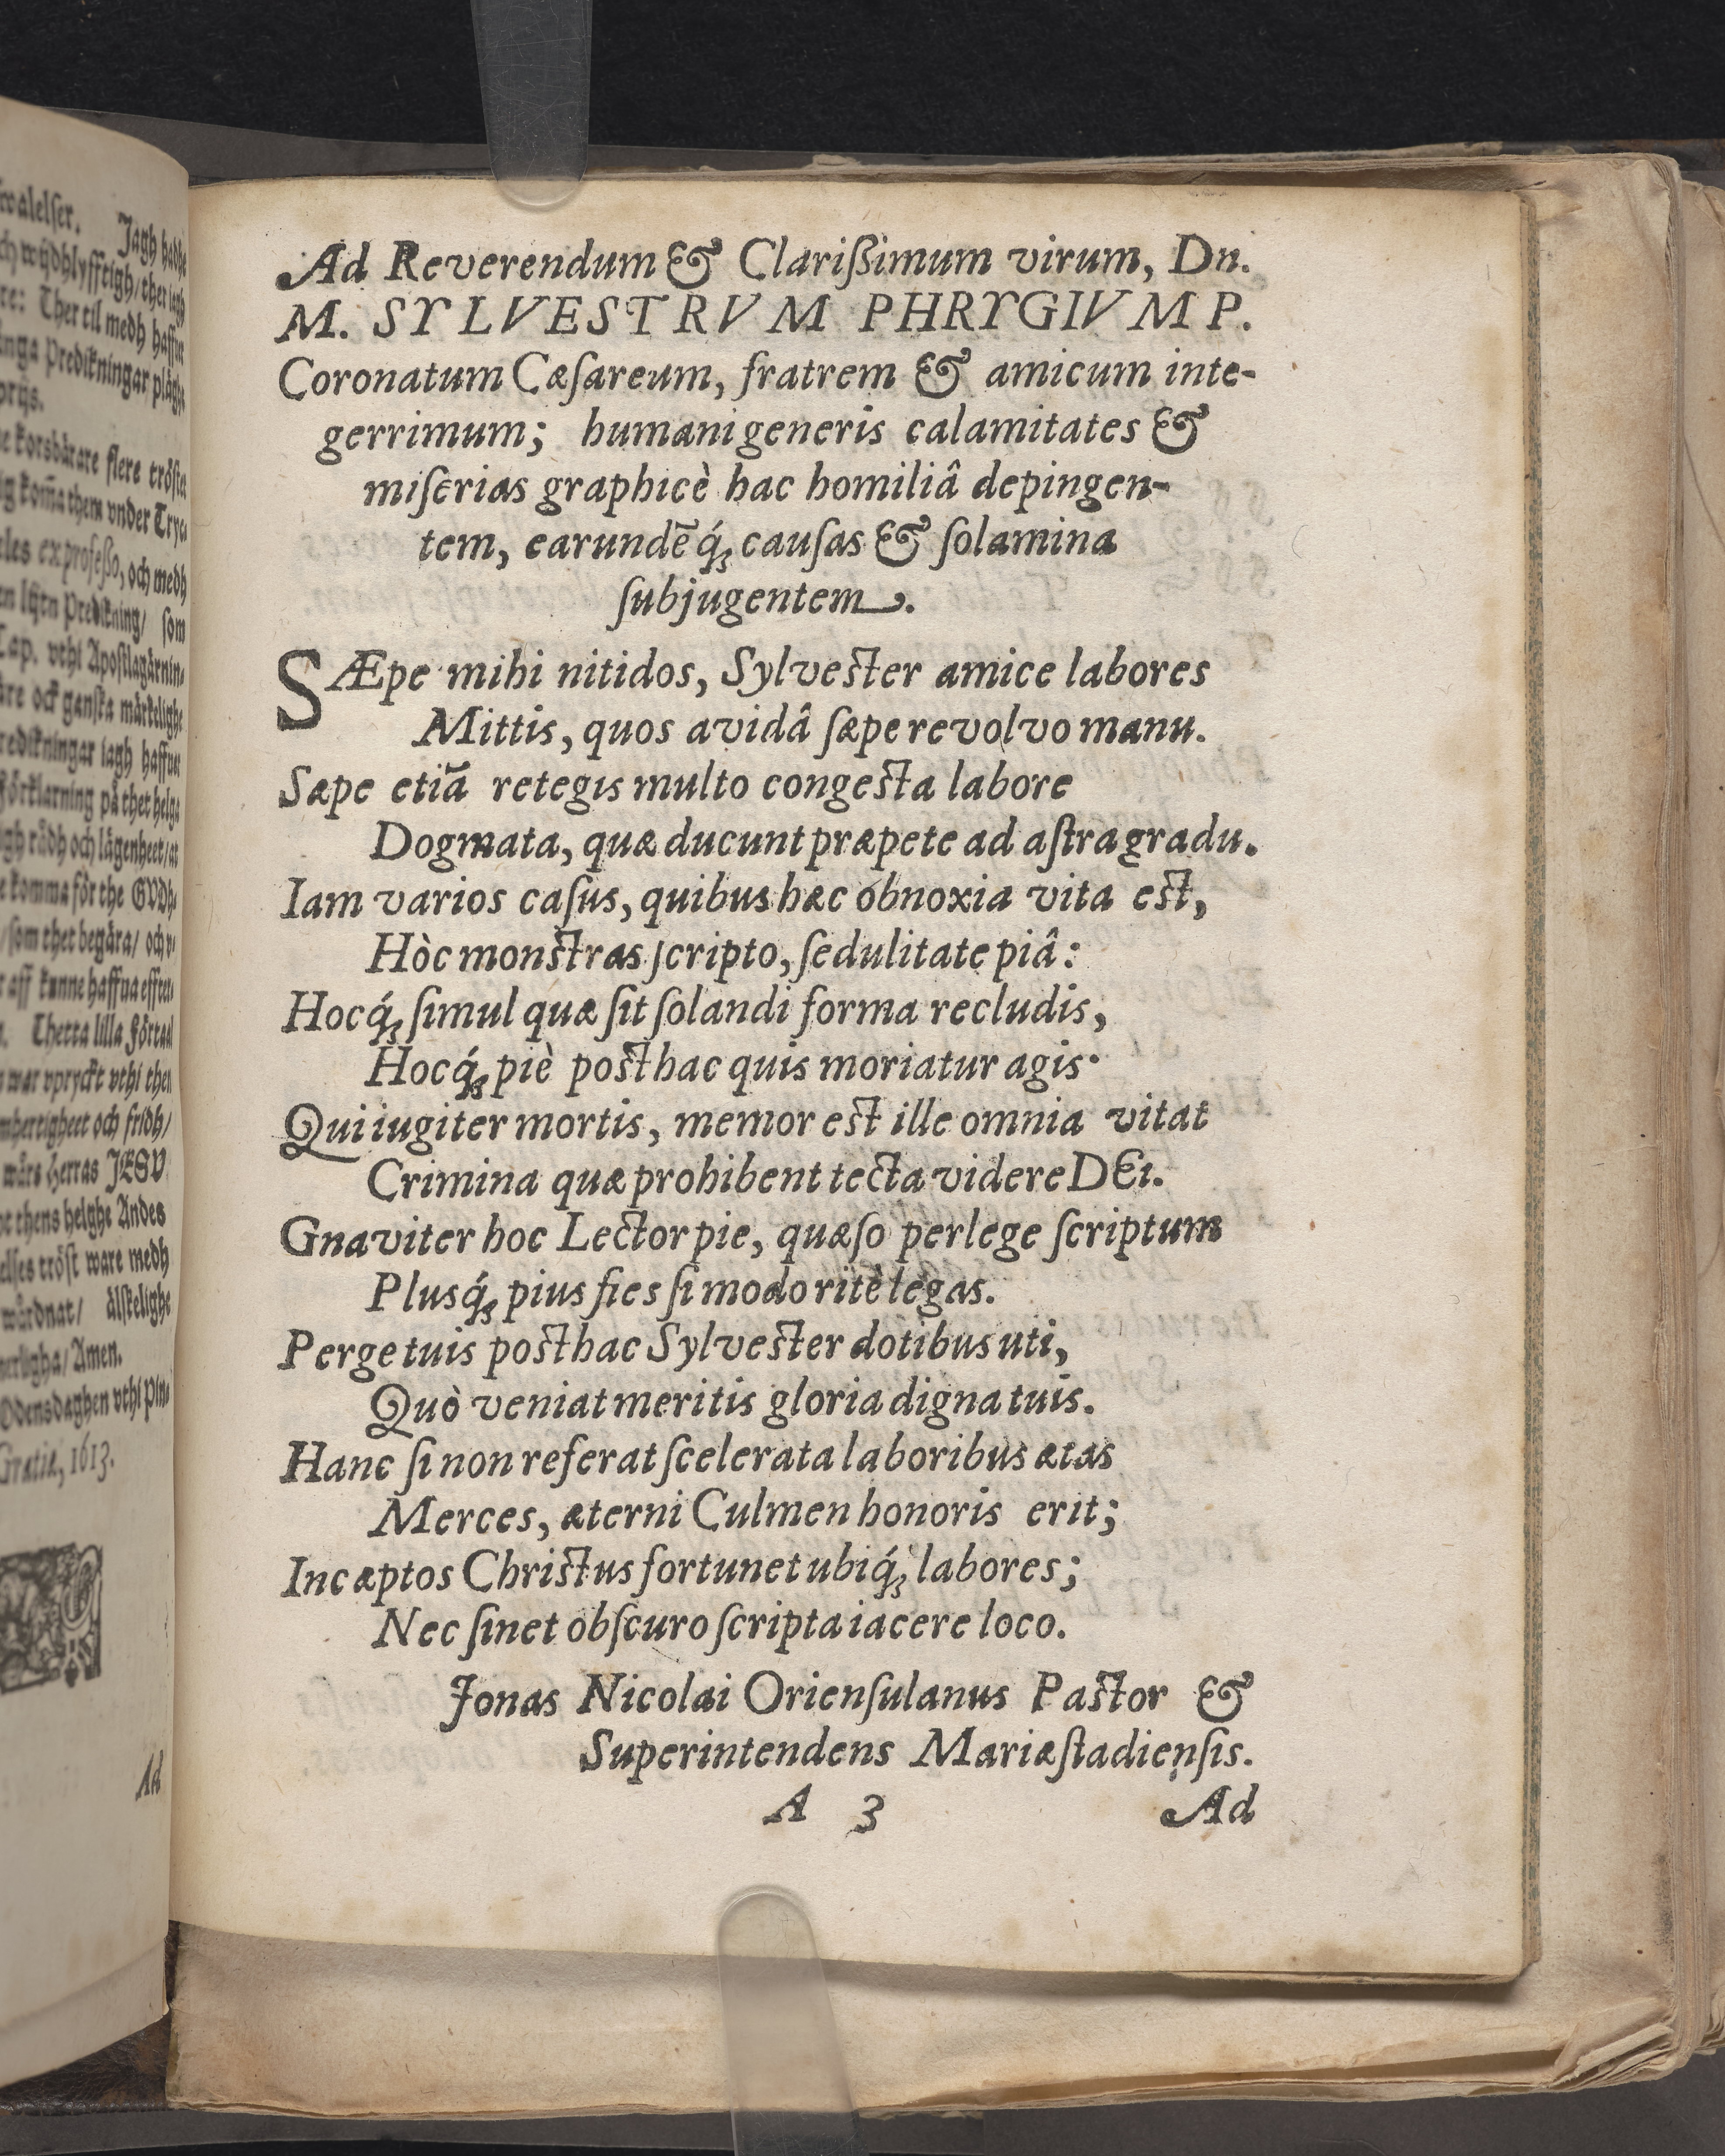 walelser. Jagh hadhe
ch wijdhlyfftigh/ ther jagh
re: Ther til medh haffua
nga Predikningar plägha
prijs.
e korsbärare flere tröster
ig kom̃a them vnder Tryc
eles ex professo, och medh
en lijten Predikning/ som
Cap. vthi Apostlagärnin⸗
äre och ganska märkelighe
redikningar iagh haffuer
Förklarning på thet helga
gh rådh och lägenheet/ at
e komma för the GVDh⸗
/ som thet begära/ och
r aff kunne haffua effter⸗
Thetta lilla Förtaal
war vpryckt vthi then
mhertigheet och fridh/
wårs Herras JESV
thens helghe Andes
elses tröst ware medh
wårdnat/ älskelighe
nerligha/ Amen.
Odensdaghen vthi Pin⸗
Gratiæ, 1613.
Ad
Ad Reverendum & Clarißimum virum, Dn.
M. SYLVESTRVM PHRYGIVM P.
Coronatum Cæſareum, fratrem & amicum inte-
gerrimum; humani generis calamitates &
miſerias graphicè hac homiliâ depingen-
tem, earundẽq́ꝫ cauſas & ſolamina
ſubjugentem.
SÆpe mihi nitidos, Sylveſter amice labores
Mittis, quos avidâ ſæpe revolvo manu.
Sæpe etiã retegis multo congeſta labore
Dogmata, quæ ducunt præpete ad aſtra gradu.
Iam varios caſus, quibus hæc obnoxia vita eſt,
Hòc monſtras ſcripto, ſedulitate piâ:
Hocq́ꝫ ſimul quæ ſit ſolandi forma recludis,
Hocq́ꝫ piè poſthac quis moriatur agis·
Qui iugiter mortis, memor eſt ille omnia vitat
Crimina quæ prohibent tecta videre DEI.
Gnaviter hoc Lector pie, quæſo perlege ſcriptum
Plusq́ꝫ pius fies ſi modo ritè legas.
Perge tuis poſthac Sylveſter dotibus uti,
Quò veniat meritis gloria digna tuis.
Hanc ſi non referat ſcelerata laboribus ætas
Merces, æterni Culmen honoris erit;
Incæptos Chriſtus fortunet ubiq́ꝫ labores;
Nec ſinet obſcuro ſcripta iacere loco.
Jonas Nicolai Orienſulanus Paſtor &
Superintendens Mariæſtadienſis.
A 3 Ad